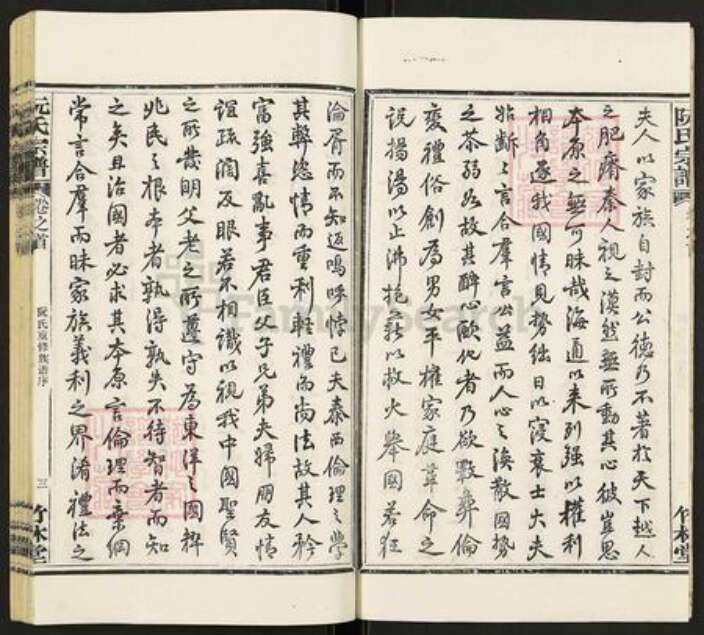 阮氏宗譜
竹林堂
夫人以家族自封而公德乃不著於天下越人
之肥瘠秦人視之漠然無所動其心彼豈思
本原之無可昧哉海通以來列強以權利
相角逐我國情見勢絀日以寖衰士大夫
始斷斷言合羣言公益而人心之渙散國勢
之茶弱如故其醉心歐化者乃欲斁彝倫
變禮俗創為男女平權家庭革命之
說揚湯以止沸抱薪以救火舉國若狂
淪胥而不知返嗚呼悖已夫泰西倫理之學
其弊恣情而重利輕禮而尚法故其人矜
富強喜亂事君臣父子兄弟夫婦朋友情
誼疏濶反眼若不相識以視我中國聖賢
之所發明父老之所遵守為東洋之國粹
兆民之根本者孰得孰失不待智者而知
之矣且治國者必求其本原言倫理而棄綱
常言合羣而昧家族義利之界淆禮法之
阮氏宗譜
卷之首
阮氏重修族譜序
三
竹林堂
FamilySearch